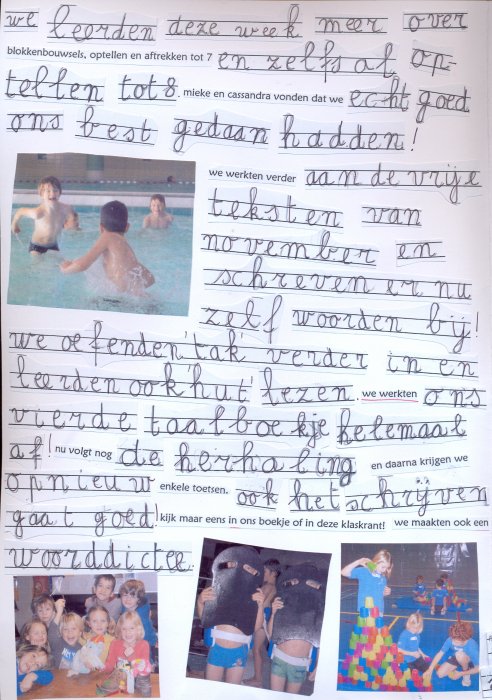 we leerden deze week meer over
blokkenbouwsels, optellen en aftrekken tot 7 en zelfs al op-
tellen tot 8. mieke en cassandra vonden dat we echt goed
ons best gedaan hadden!
we werkten verder aan de vrije
teksten van
november en
schreven er nu
zelf woorden bij!
we oefenden 'tak' verder in en
leerden ook 'hut' lezen. we werkten ons
vierde taalboekje helemaal
af! nu volgt nog de herhaling en daarna krijgen we
opnieuw enkele toetsen. ook het schrijven
gaat goed! kijk maar eens in ons boekje of in deze klaskrant! we maakten ook een
woorddictee.